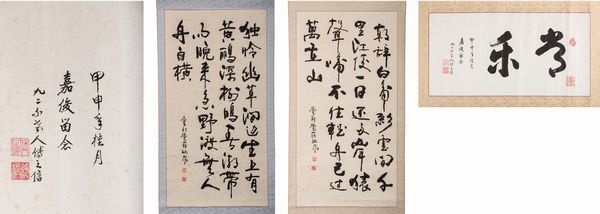 甲申年桂月
嘉俊留念
独怜幽草澗边生上有
黄鹂深树鳴春潮帶
雨晚来急野渡無人
舟自橫
朝辞白帝彩雲间千
里江陵一日还两岸猿
聲啼不住轻舟已过
萬重山
常乐
甲申年桂月
嘉俊留念